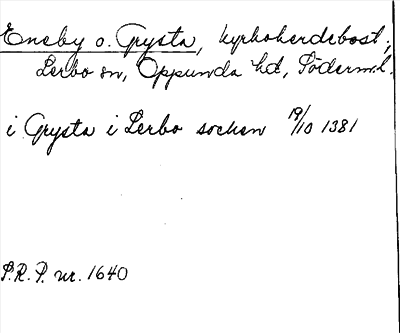 Eneby o. Grysta, kyrkoherdebost.,
Lerbo sn, Oppunda hd, Söderm.l.
i Grysta i Lerbo socken 19/10 1381
S.R.P. nr. 1640